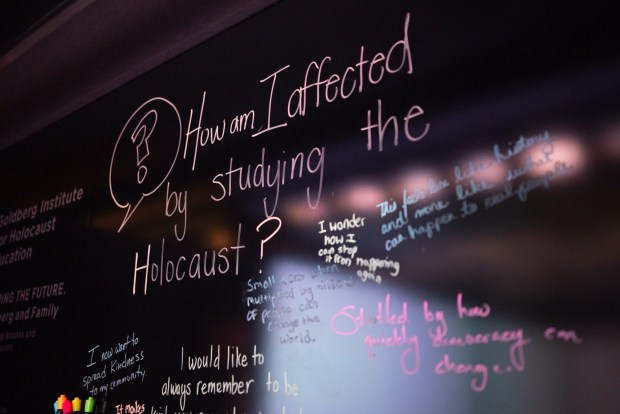 ?
How am I affected
by studying the
Holocaust?
Goldberg Institute
for Holocaust
Education
ING THE FUTURE.
erg and Family
This feels less like history
and more like what
can happen to real people.
I wonder
how I
can stop
it from happening
again
Small
multiplied by millions
of people can
change the
world.
Startled by how
quickly democracy can
change.
I now want to
spread kindness
to my community.
I would like to
always remember to be
It makes